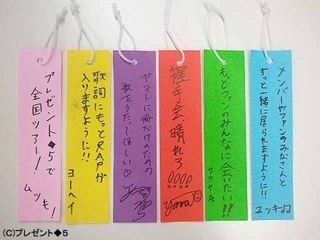 メンバーやファンのみなさんと
ずっと一緒に居られますように!!
もっとファンのみんなに会いたい!!
サクヤ
握手会、晴れろ
ヤマトに俺だけのための
歌をうたってほしい♡
歌詞にもっとRAPが
入りますように!!
ヨーヘイ
プレゼント◆5で
全国ツアー!
ムッキー!
(C)プレゼント◆5